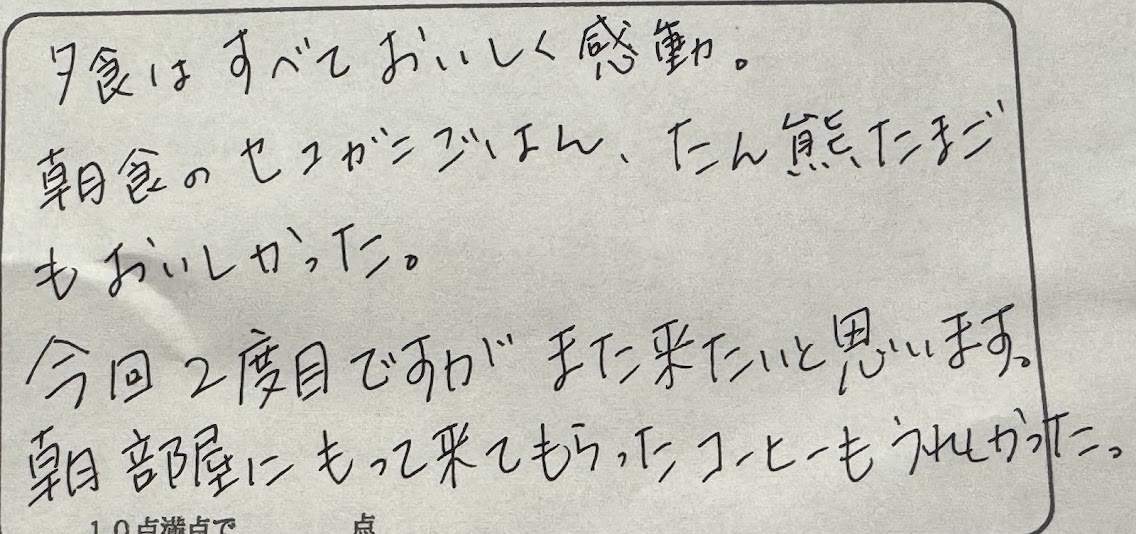 夕食はすべておいしく感動。
朝食のセコがにごはん、たん熊たまご
もおいしかった。
今回2度目ですがまた来たいと思います。
朝部屋にもって来てもらったコーヒーもうれしかった。
10点満点で 点